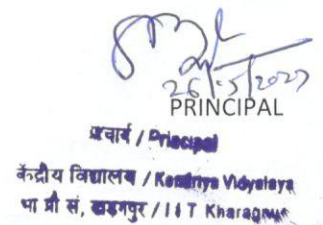 26/5/2023
PRINCIPAL
प्राचार्य / Principal
केंद्रीय विद्यालय / Kendriya Vidyalaya
भा प्रौ सं, खड़गपुर / I I T Kharagpur